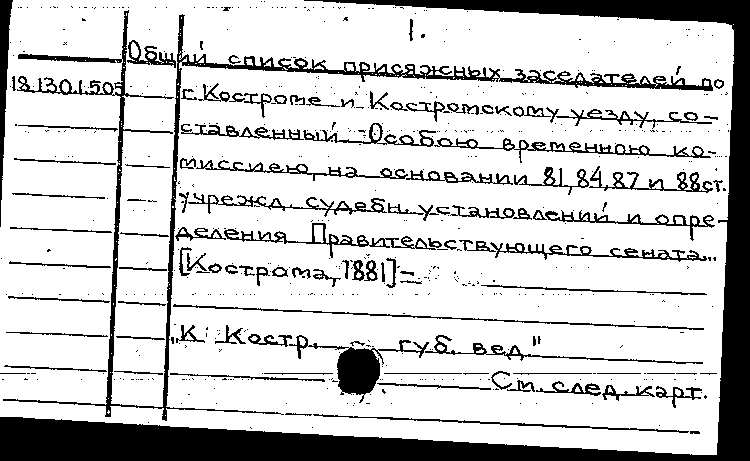 1.
Общий список присяжных заседателей по
18.130.1.505 г. Костроме и Костромскому уезду, со-
ставленный Особою временною ко-
миссиею, на основании 81, 84, 87 и 88 ст.
учрежд. судебн. установлений и опре-
деления Правительствующего сената...
[Кострома, 1881] –
„К Костр. губ. вед."
См. след. карт.